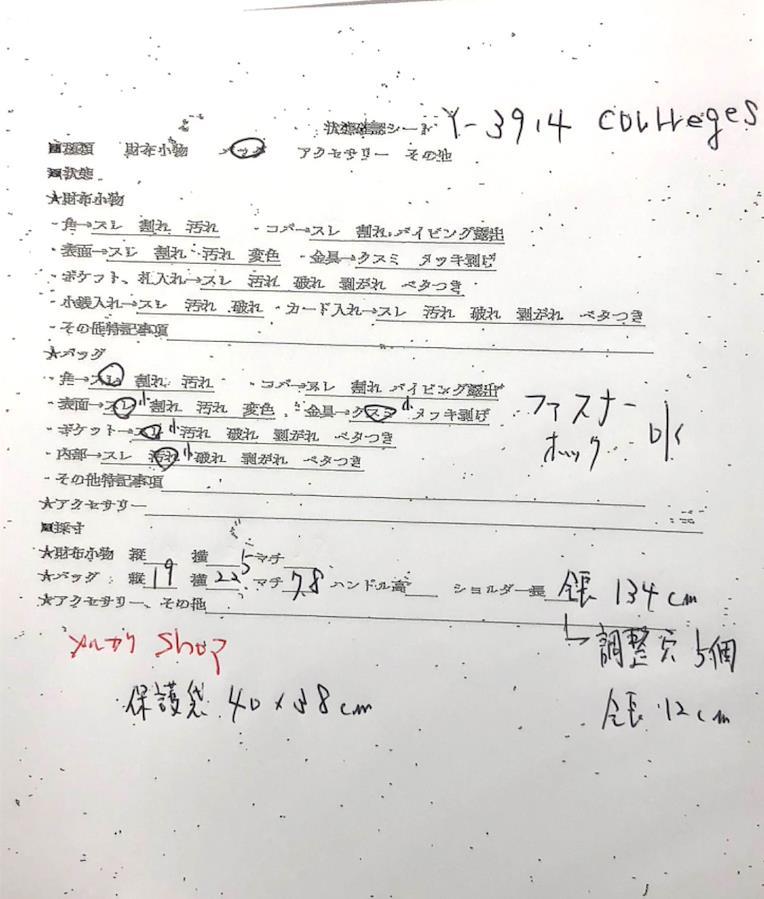 状態確認シート Y-3914 courreges
■種類 財布小物 バッグ アクセサリー その他
■状態
★財布小物
・角→スレ 割れ 汚れ ・コバ→スレ 割れ パイピング露出
・表面→スレ 割れ 汚れ 変色 ・金具→クスミ メッキ剥げ
・ポケット、札入れ→スレ 汚れ 破れ 剥がれ ベタつき
・小銭入れ→スレ 汚れ 破れ ・カード入れ→スレ 汚れ 破れ 剥がれ ベタつき
・その他特記事項
★バッグ
・角→スレ 割れ 汚れ ・コバ→スレ 割れ パイピング露出
・表面→スレ小 割れ 汚れ 変色 ・金具→クスミ小 メッキ剥げ
・ポケット→スレ小 汚れ 破れ 剥がれ ベタつき
・内部→スレ 汚れ小 破れ 剥がれ ベタつき
ファスナー
ホック OK
・その他特記事項
★アクセサリー
■採寸
★財布小物 縦 横 マチ
★バッグ 縦19 横22.5 マチ7.8 ハンドル高 ショルダー長 全長 134cm
★アクセサリー、その他
↳調整穴 5個
メルカリ Shop
保護袋 40×38cm
全長 12cm